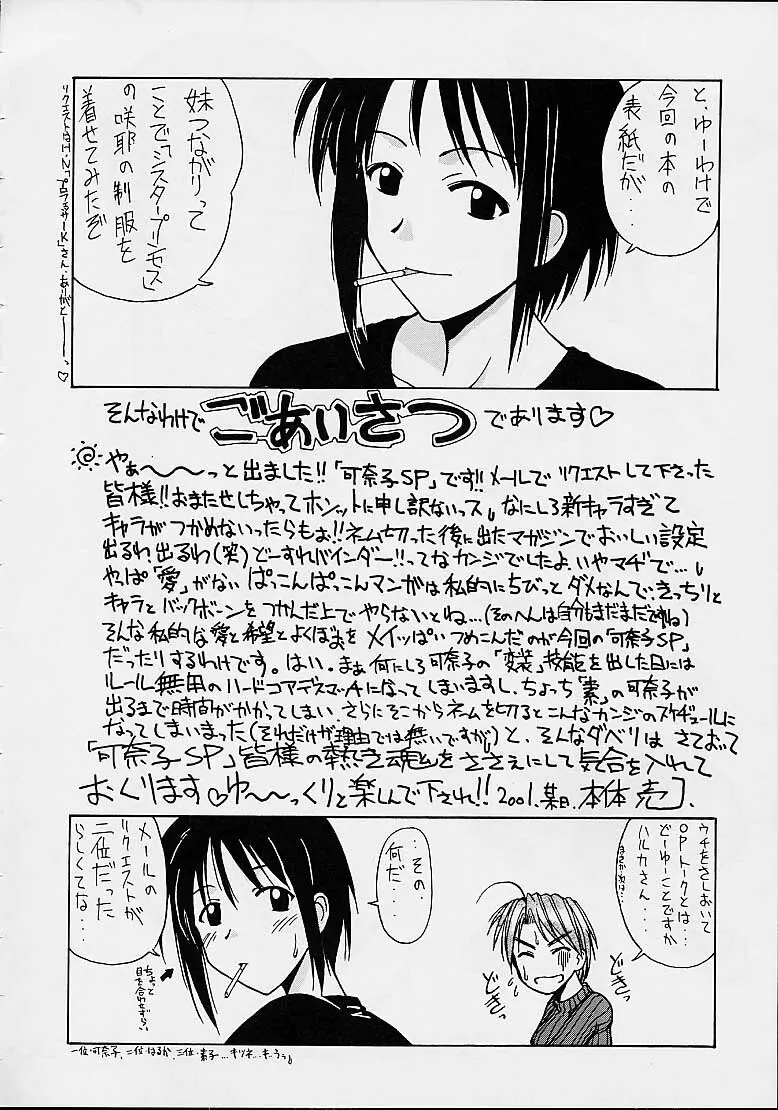 と、ゆーわけで
今回の本の
表紙だが・・・
妹つながりって
ことで「シスタープリンセス」
の咲耶の制服を
着せてみたぞ
そんなわけで ごあいさつ であります♡
やぁ〜〜〜っと出ました!!「可奈子SP」です!!メールでリクエストして下さった
皆様!!おまたせしちゃってホンットに申し訳ないっス なにしろ新キャラすぎて
キャラがつかめないったらもぉ!!ネム切った後に出たマガジンでおいしい設定
出るわ、出るわ(笑)どーすれバインダー!!ってなカンジでしたよ、いやマヂで…
やっぱ「愛」がない ぱっこんぱっこんマンガは私的にちびっとダメなんで、きっちりと
キャラとバックボーンをつかんだ上でやらないとね…(そのへんは自分もまだまだですね)
そんな私的な愛と希望とよくぼぉをメイッぱいつめこんだのが今回の「可奈子SP」
だったりするわけです。はい。まぁ何にしろ可奈子の「変装」技能を出した日には
ルール無用のハードコアデスマッチになってしまいますし、ちょっち「素」の可奈子が
出るまで時間がかかってしまい さらにそこからネームを切るとこんなカンジのスケヂュールに
なってしまいまった(それだけが理由では無いですが)と、そんなダベリはさておいて
「可奈子SP」皆様の熱き魂をささえにして気合を入れて
おくります♡ゆ〜〜っくりと楽しんで下され!!2001.某日.本体 売].
ウチをさしおいて
OPトークとは・・
どーゆーことですか
ハルカさん・・・
・・その
何だ・・
メールの
リクエストが
二位だった
らしくてな・・・
どきっ
どきっ
ちょっと
目を合わせずらい
一位・可奈子、二位・はるか、三位・素子…キツネ…キ・うぅ